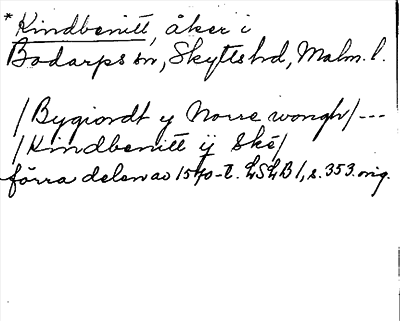 *Kindbenitt, åker i
Bodarps sn, Skytts hd, Malm. l.
/Bygiordt y Norre wongh/---
/Kindbenitt ÿ Ske/
förra delen av 1570-t. LSLB 1, s. 353. orig.